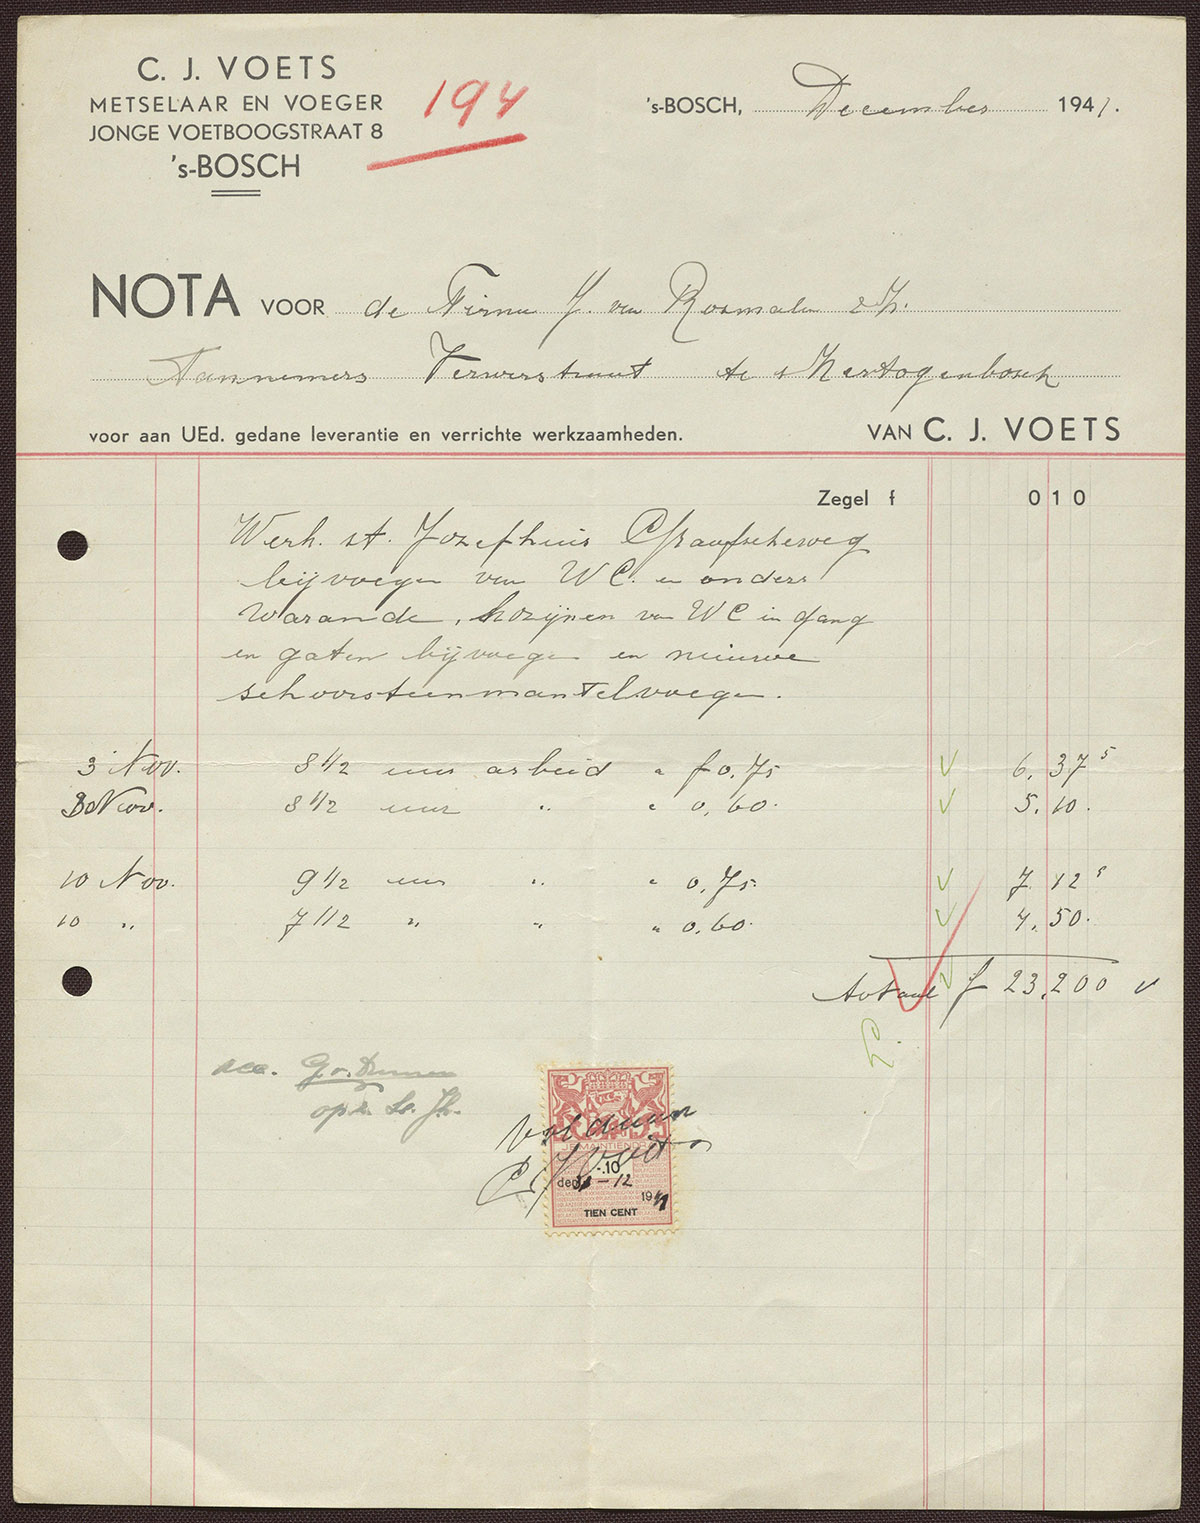 C. J. VOETS
METSELAAR EN VOEGER
JONGE VOETBOOGSTRAAT 8
's-BOSCH
194
's-BOSCH, December 1941.
NOTA VOOR de Firma J. van Rosmalen & Zn.
Aannemers Verwerstraat te s Hertogenbosch
voor aan UEd. gedane leverantie en verrichte werkzaamheden.
VAN C. J. VOETS
Zegel f 0 1 0
Werk. st. Jozefhuis Graafscheweg
bijvoegen van WC. en onders
Warande, kozijnen van WC in gang
en gaten bijvoegen en nieuwe
schoorsteenmantel voegen.
3 Nov. 8 1/2 uur arbeid " f 0,75 6,37⁵
3 Nov. 8 1/2 uur " " 0,60. 5,10.
10 Nov. 9 1/2 uur " " 0,75. 7.12⁵
10 " 7 1/2 " " " 0,60. 4,50.
totaal f 23,200
acc.
Voldaan
C J Voets
JE MAINTIENDRAI
-.10
de 31-12
1941
TIEN CENT